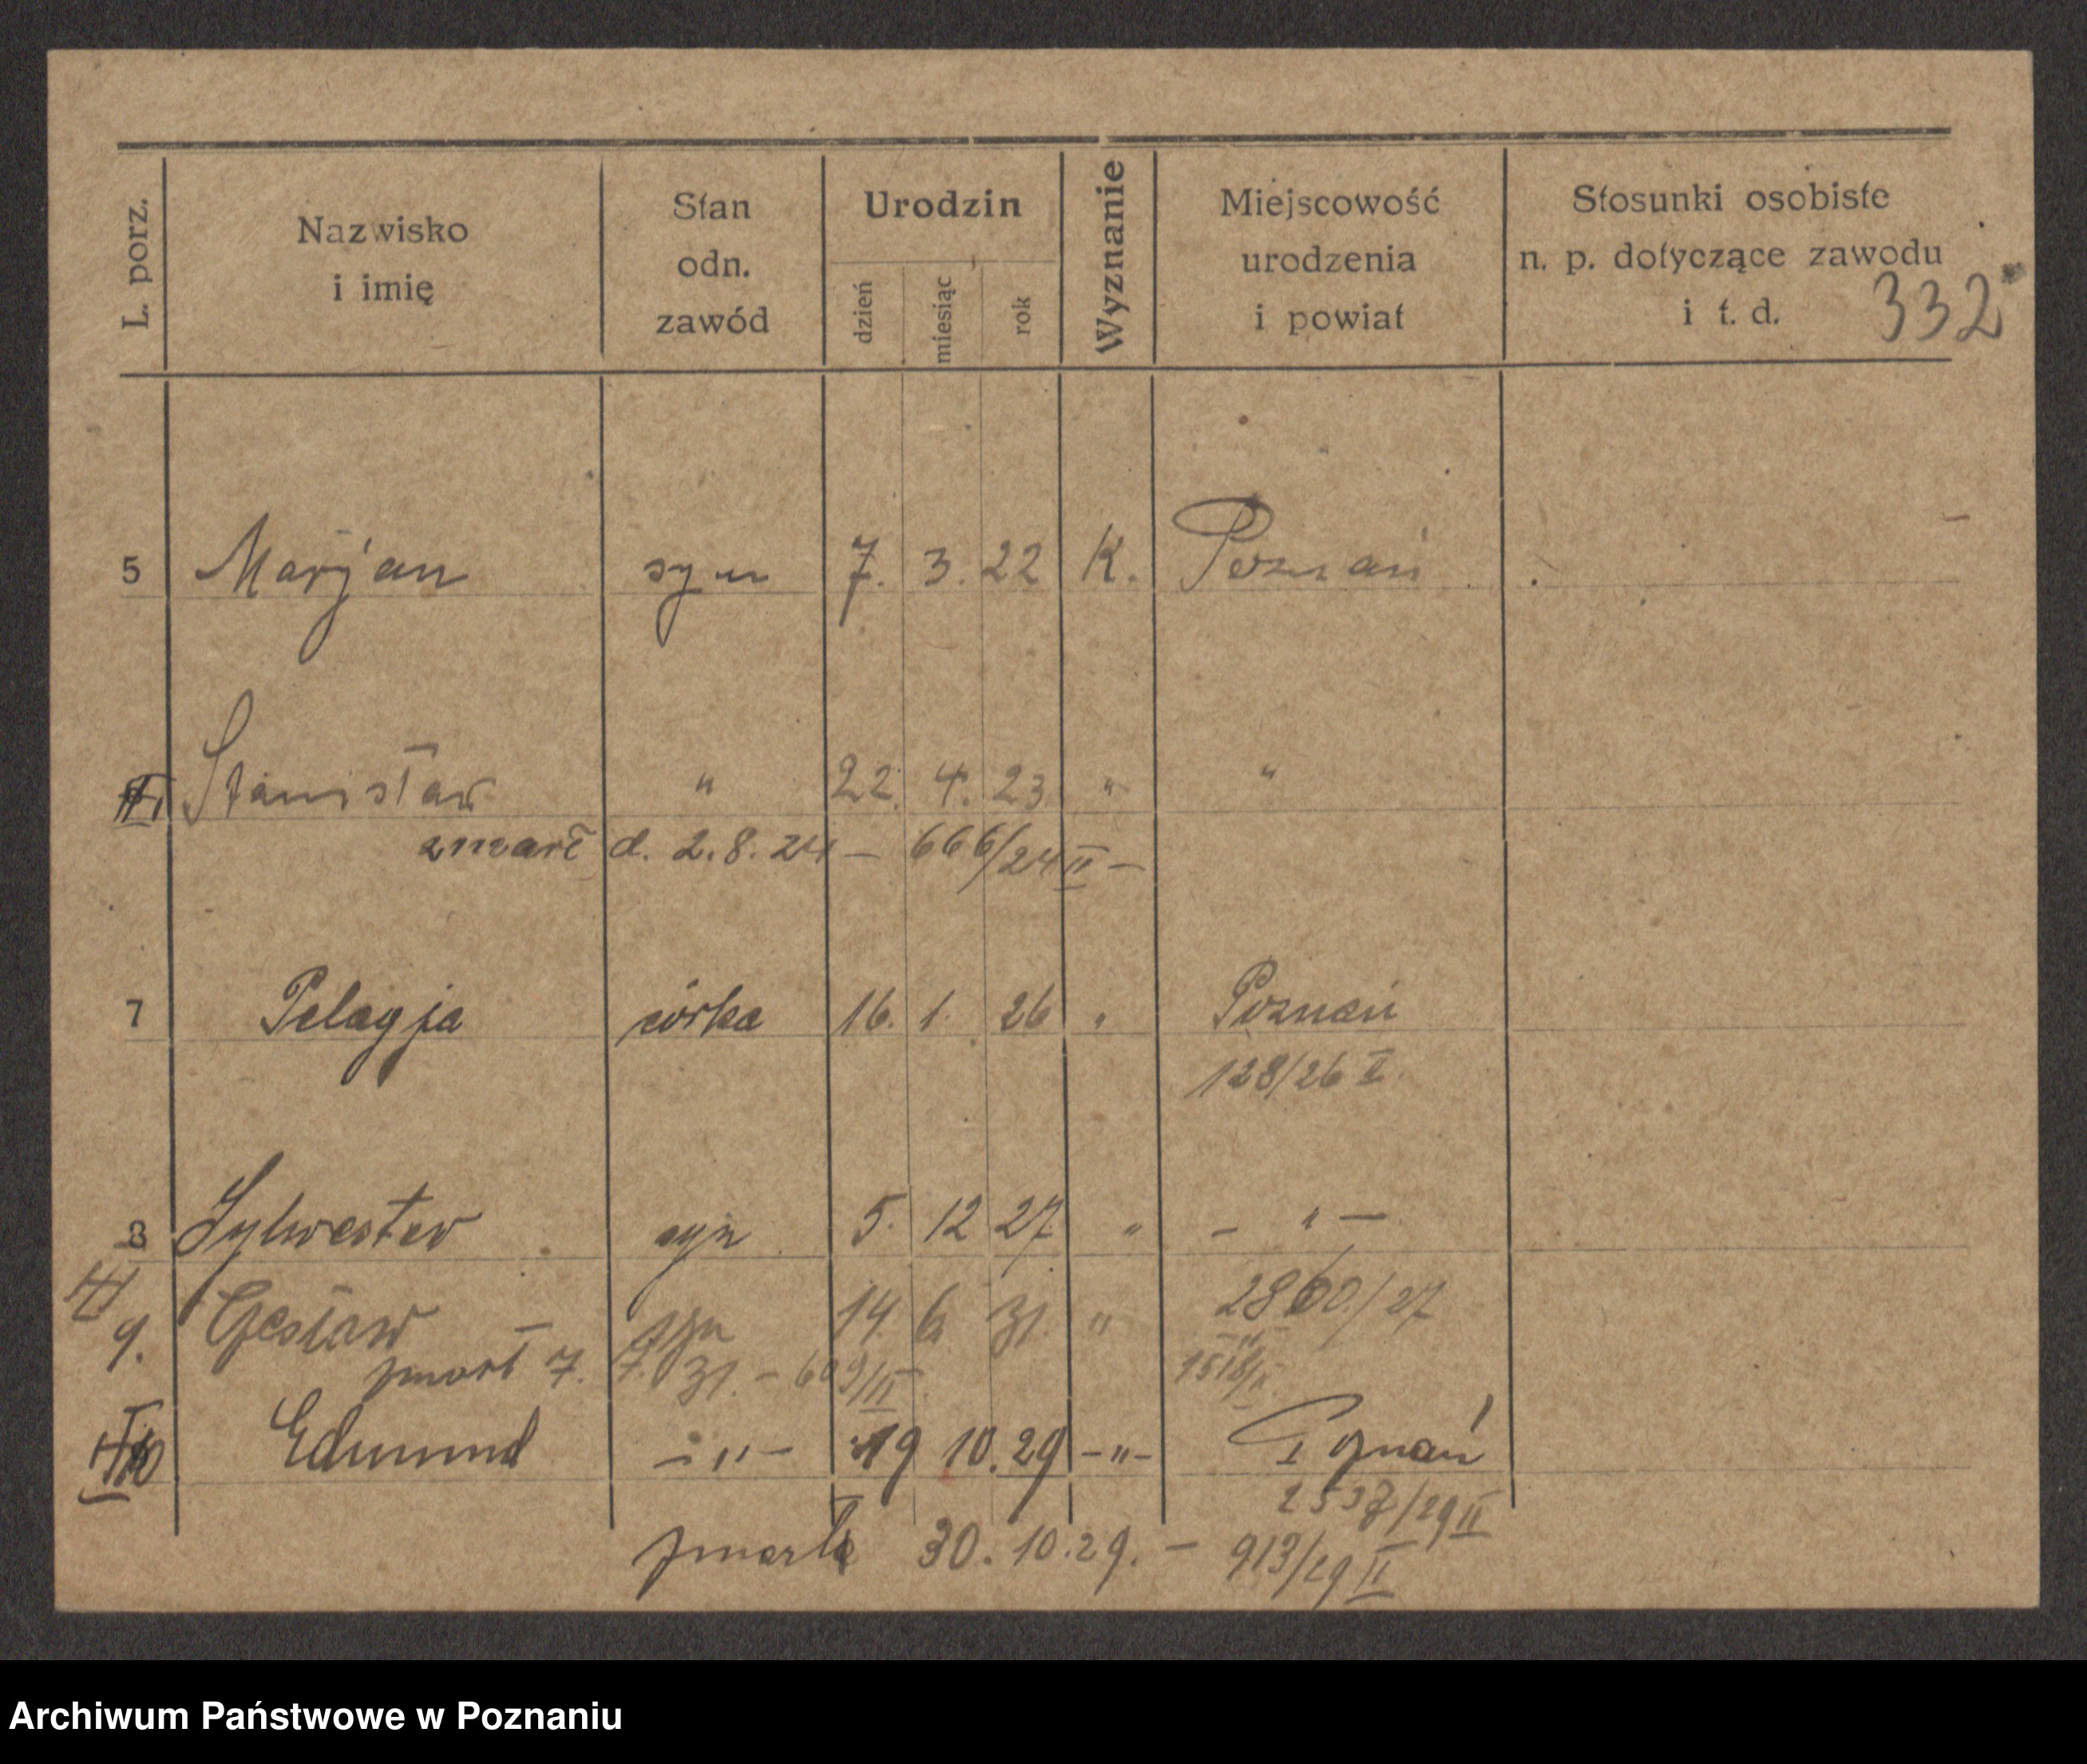 L. porz. Nazwisko i imię Stan odn. zawód Urodzin dzień miesiąc rok Wyznanie Miejscowość urodzenia i powiat Stosunki osobiste n. p. dotyczące zawodu i t. d.
332
5 Marjan syn 7. 3. 22 K. Poznań
Stanisław " 22. 4. 23 " "
zmarł d. 2.8.24 – 666/24 II –
7 Pelagja córka 16. 1. 26 " Poznań
128/26 I
8 Sylwester syn 5. 12 27 " – " –
2860/27
9. Czesław syn 14. 6. 31. " – " –
zmarł 7. 7. 31. – 609/II
10 Edmund – " – 19 10. 29 – " – Poznań
2537/29 II
zmarł 30. 10. 29. – 913/29 II
Archiwum Państwowe w Poznaniu